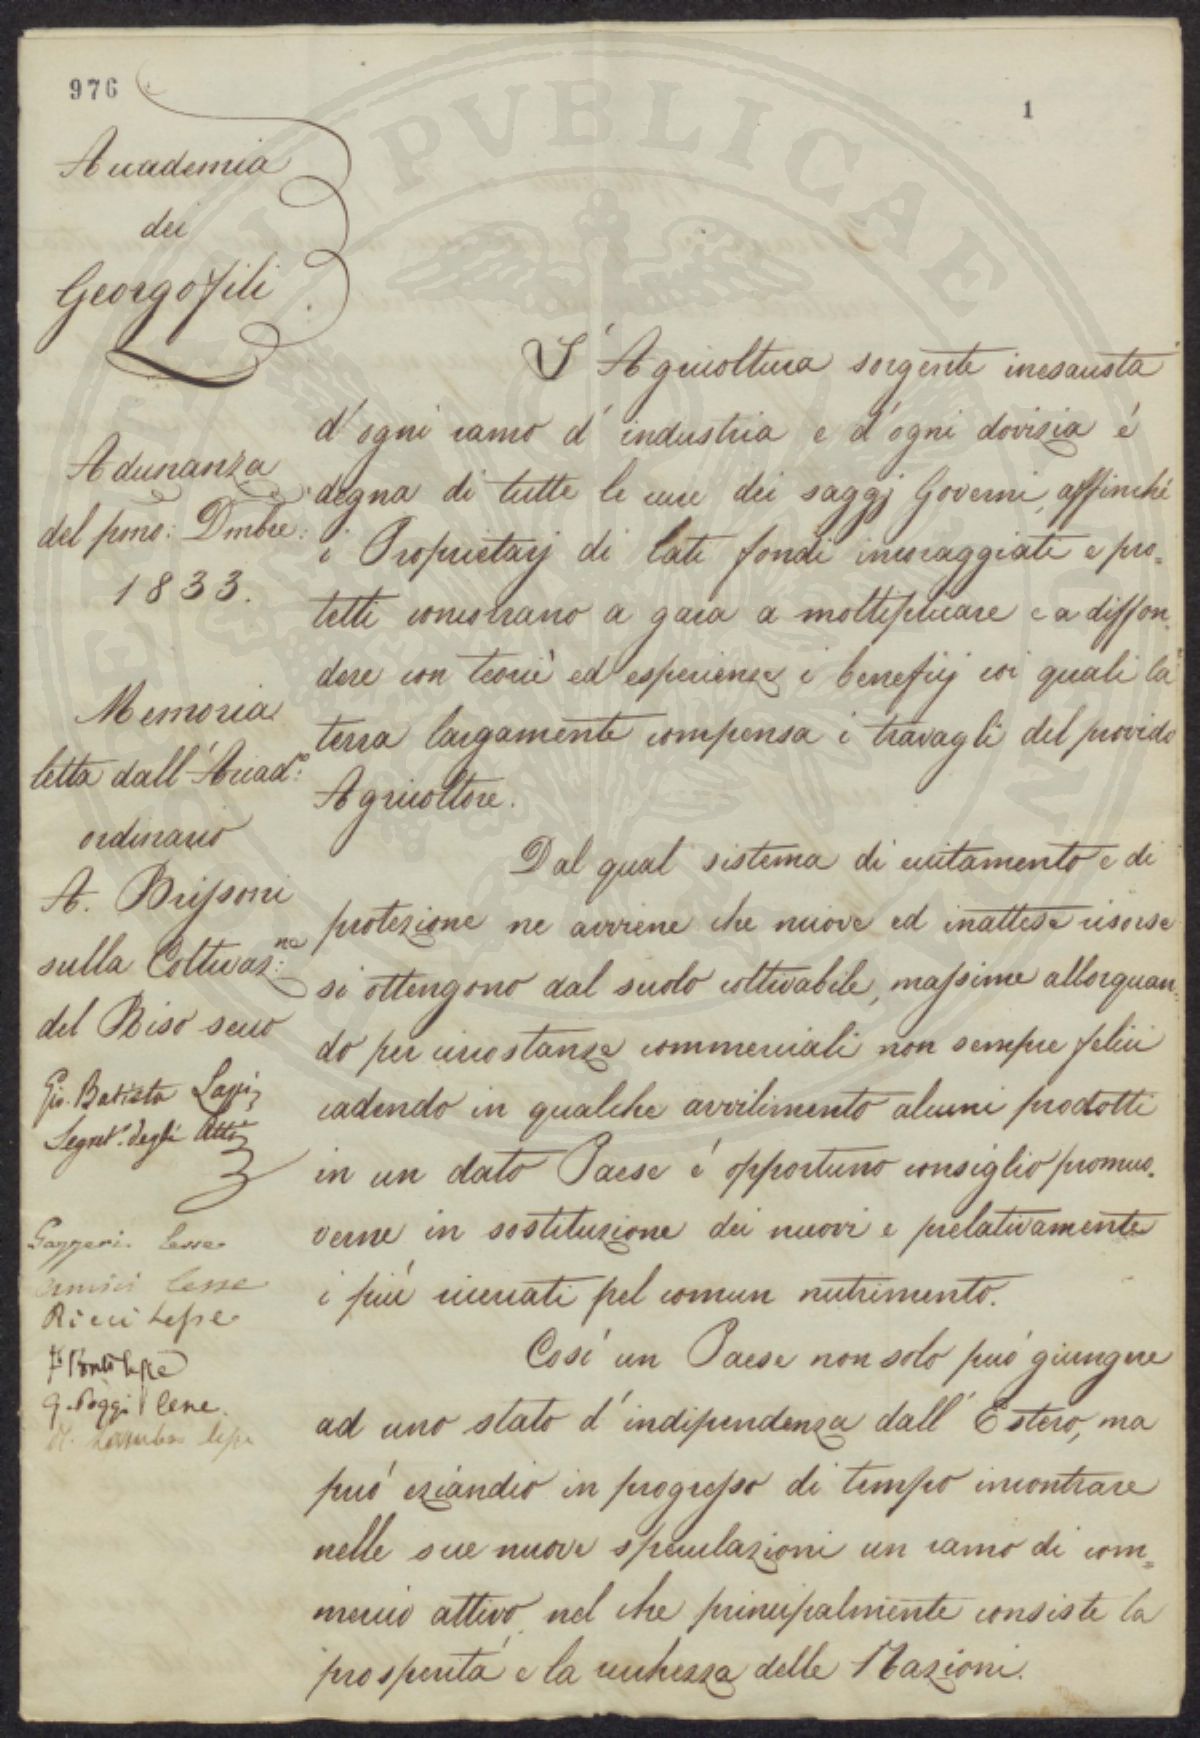 976
1
Accademia
dei
Georgofili
Adunanza
del pmo: Dmbre:
1833.
Memoria
letta dall'Accad.º:
ordinario
A. Brissoni
sulla Coltivaz:ne
del Riso secco
Gio. Batista Lapi
Segret.º degli Atti
Gazzeri lesse
lesse
Ricci lesse
lesse
G. Poggi lesse.
lesse
L'Agricoltura sorgente inesausta
d'ogni ramo d'industria e d'ogni dovizia é
degna di tutte le cure dei saggj Governi, affinché
i Proprietarj di lati fondi incoraggiati e pro=
tetti concorrano a gara a moltiplicare e a diffon=
dere con teorie ed esperienze i beneficj coi quali la
terra largamente compensa i travagli del provido
Agricoltore.
Dal qual sistema di eccitamento e di
protezione ne avviene che nuove ed inattese risorse
si ottengono dal suolo coltivabile, massime allorquan=
do per circostanze commerciali non sempre felici
cadendo in qualche avvilimento alcuni prodotti
in un dato Paese é opportuno consiglio promuo=
verne in sostituzione dei nuovi e prelativamente
i piú ricercati pel comun nutrimento.
Cosí un Paese non solo puó giungere
ad uno stato d'indipendenza dall'Estero, ma
puó eziandio in progresso di tempo incontrare
nelle sue nuove speculazioni un ramo di com=
mercio attivo, nel che principalmente consiste la
prosperitá e la ricchezza delle Nazioni.
PVBLICAE